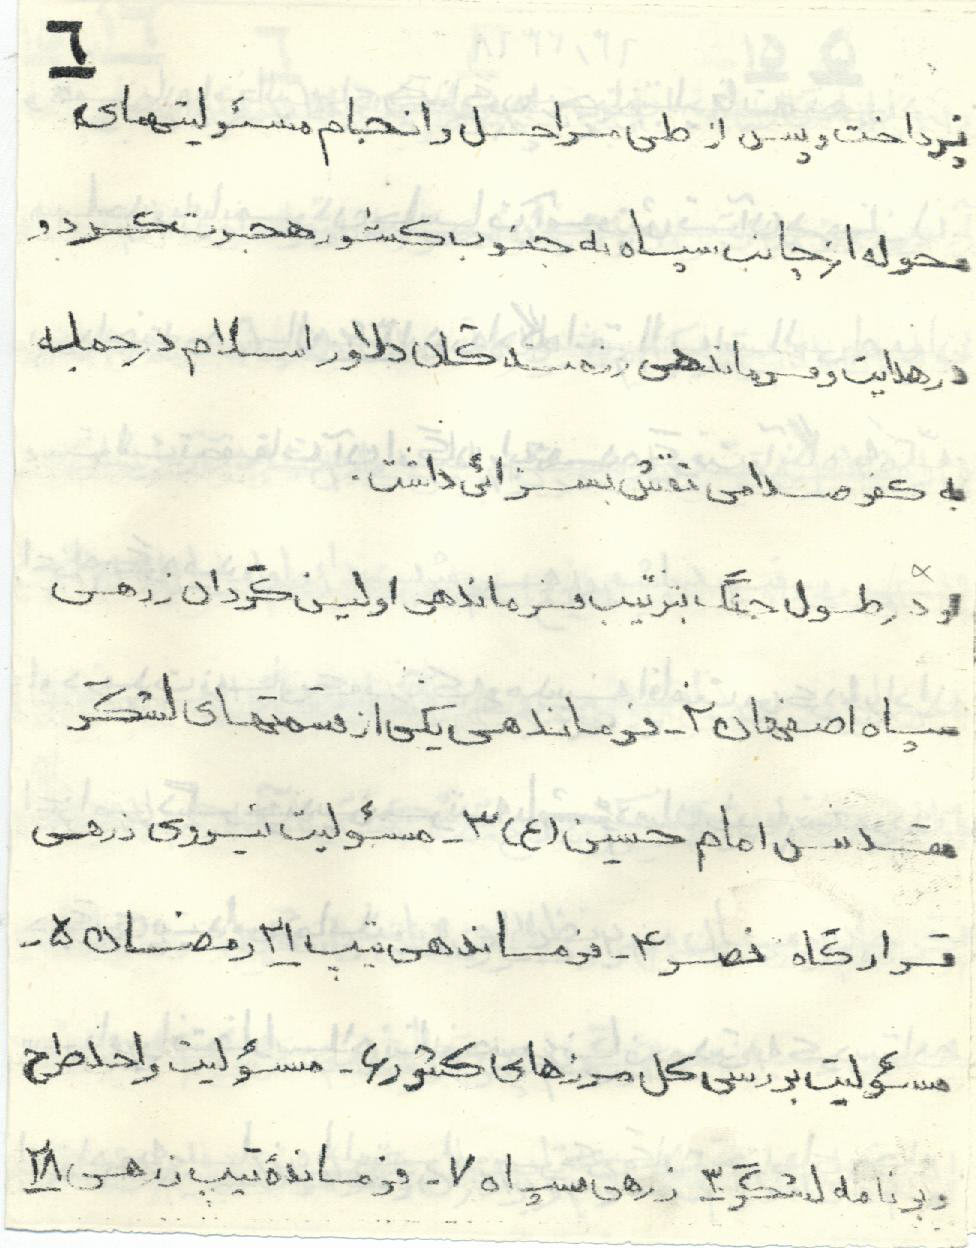 ٦
پرداخت و پس از طی مراحل و انجام مسئولیتهای
محوله از جانب سپاه به جنوب کشور هجرت کرد و
در هدایت و فرماندهی رزمندگان دلاور اسلام در حمله
به کفر صدامی نقش بسزائی داشت.
او در طول جنگ بترتیب فرماندهی اولین گردان زرهی
سپاه اصفهان ۲ـ فرماندهی یکی از قسمتهای لشگر
مقدس امام حسین (ع) ۳ـ مسئولیت نیروی زرهی
قرارگاه ۴ـ فرماندهی تیپ ۳۱ رمضان ۵ـ
مسئولیت بررسی کل مرزهای کشور ۶ـ مسئولیت واحد طرح
و برنامه لشگر ۳ زرهی سپاه ۷ـ فرماندهٔ تیپ زرهی ۲۸